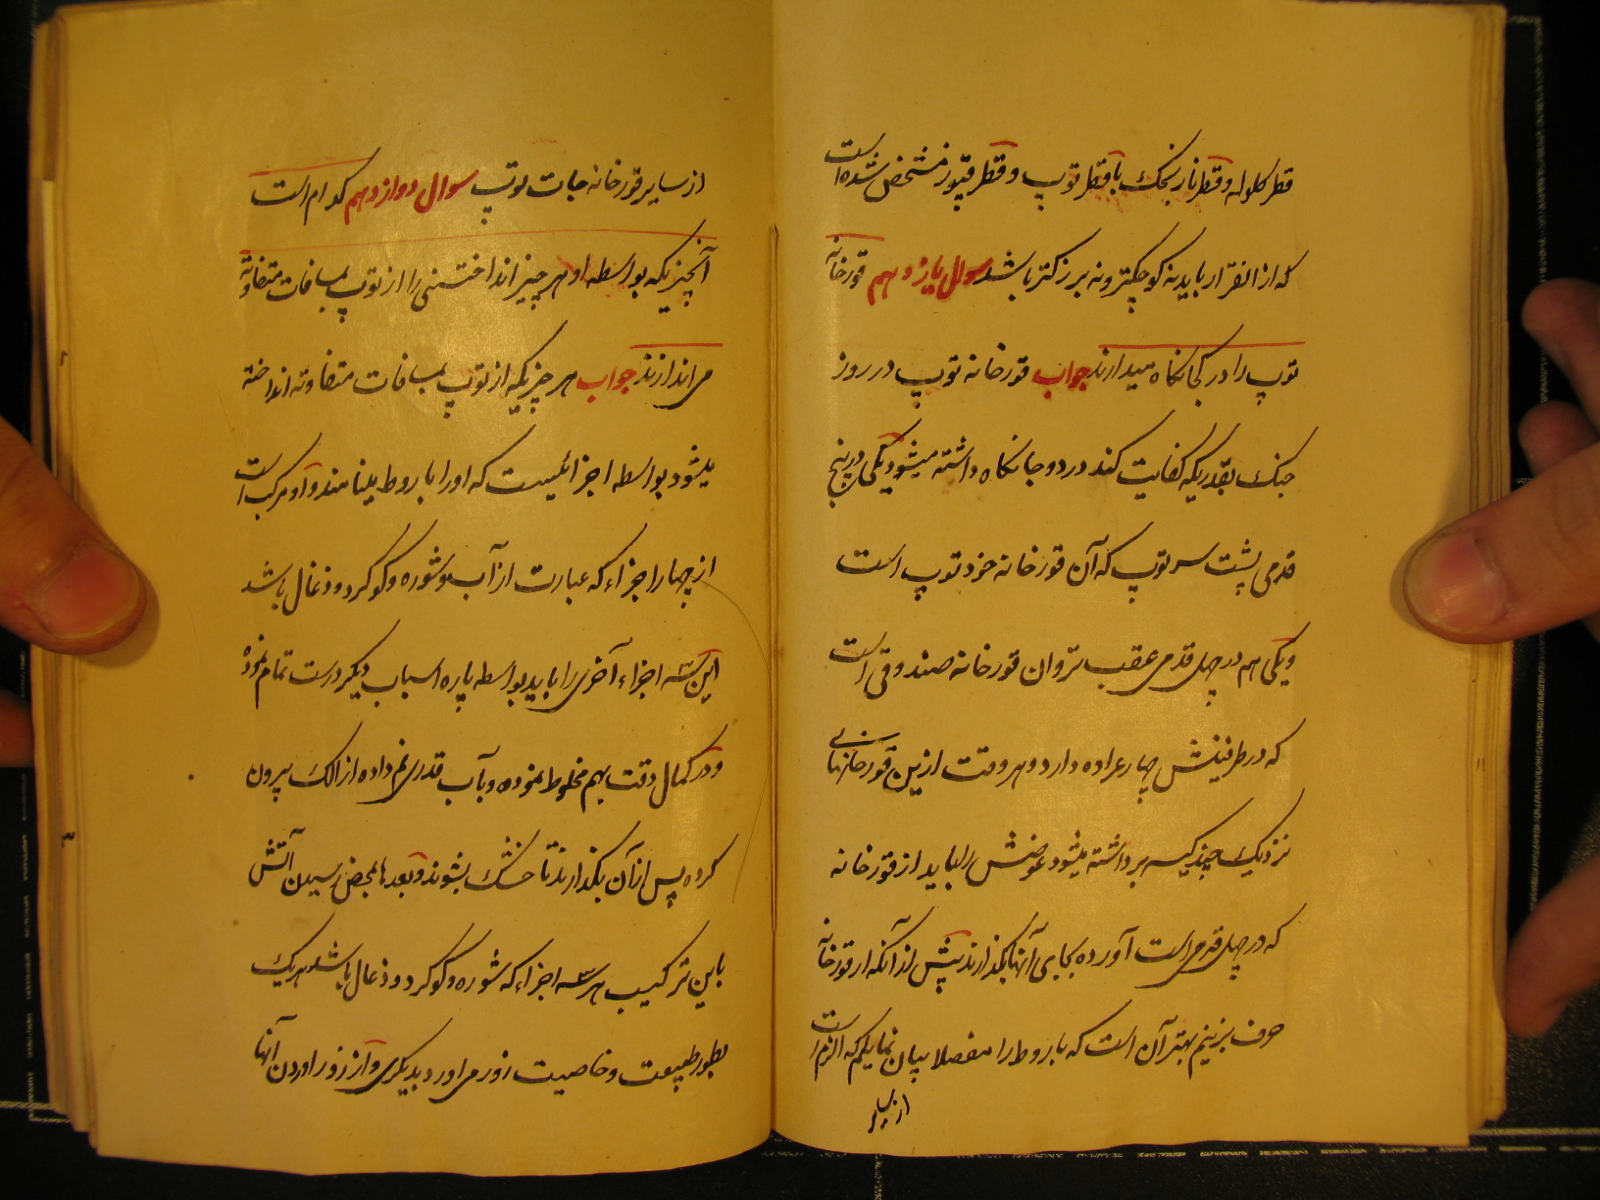 قطر کلوله و قطر نارنجک با قطر توپ و قطر قپوز مشخص شده است
که از انقرار باید نه کوچکتر و نه بزرکتر باشد سوال یازدهم قورخانه
توپ را در کجا نکاه میدارند جواب قورخانه توپ در روز
جنک بقدریکه کفایت کند در دو جا نکاه داشته میشود یکی در پنج
قدمی پشت سر توپ که آن قورخانه خود توپ است
و یکی هم در چهل قدمی عقب تر و آن قورخانه صندوقی است
که در طرفینش چهار عراده دارد و هر وقت ازین قورخانهای
نزدیک چند کیسه برداشته میشود عوضش را باید از قورخانه
که در چهل قدمی است آورده بجای آنها بکذارند پیش از آنکه از قورخانه
حرف بزنیم بهتر آن است که باروط را مفصلا بیان نمائیم که الزم است
از سایر
از سایر قورخانه جات توپ سوال دوازدهم کدام است
آنچیزیکه بواسطه او هر چیز انداختنی را از توپ بمسافات متفاوته
می اندازند جواب هر چیزیکه از توپ بمسافات متفاوته انداخته
میشود بواسطه اجزائیست که او را باروط مینامند و او مرکب است
از چهار اجزاء که عبارت از آب و شوره و کوکرد و ذغال باشد
این سه اجزاء آخری را باید بواسطه پاره اسباب دیکر درست تمام نموده
و در کمال دقت بهم مخلوط نموده و بآب قدری نم داده از الک بیرون
کرده پس از آن بکذارند تا خشک بشوند و بعدها بمحض رسیدن آتش
باین ترکیب هر سه اجزاء که شوره و کوکرد و ذغال باشد هر یک
بطور طبیعت و خاصیت زور می اورد بدیکری و از زور اوردن آنها